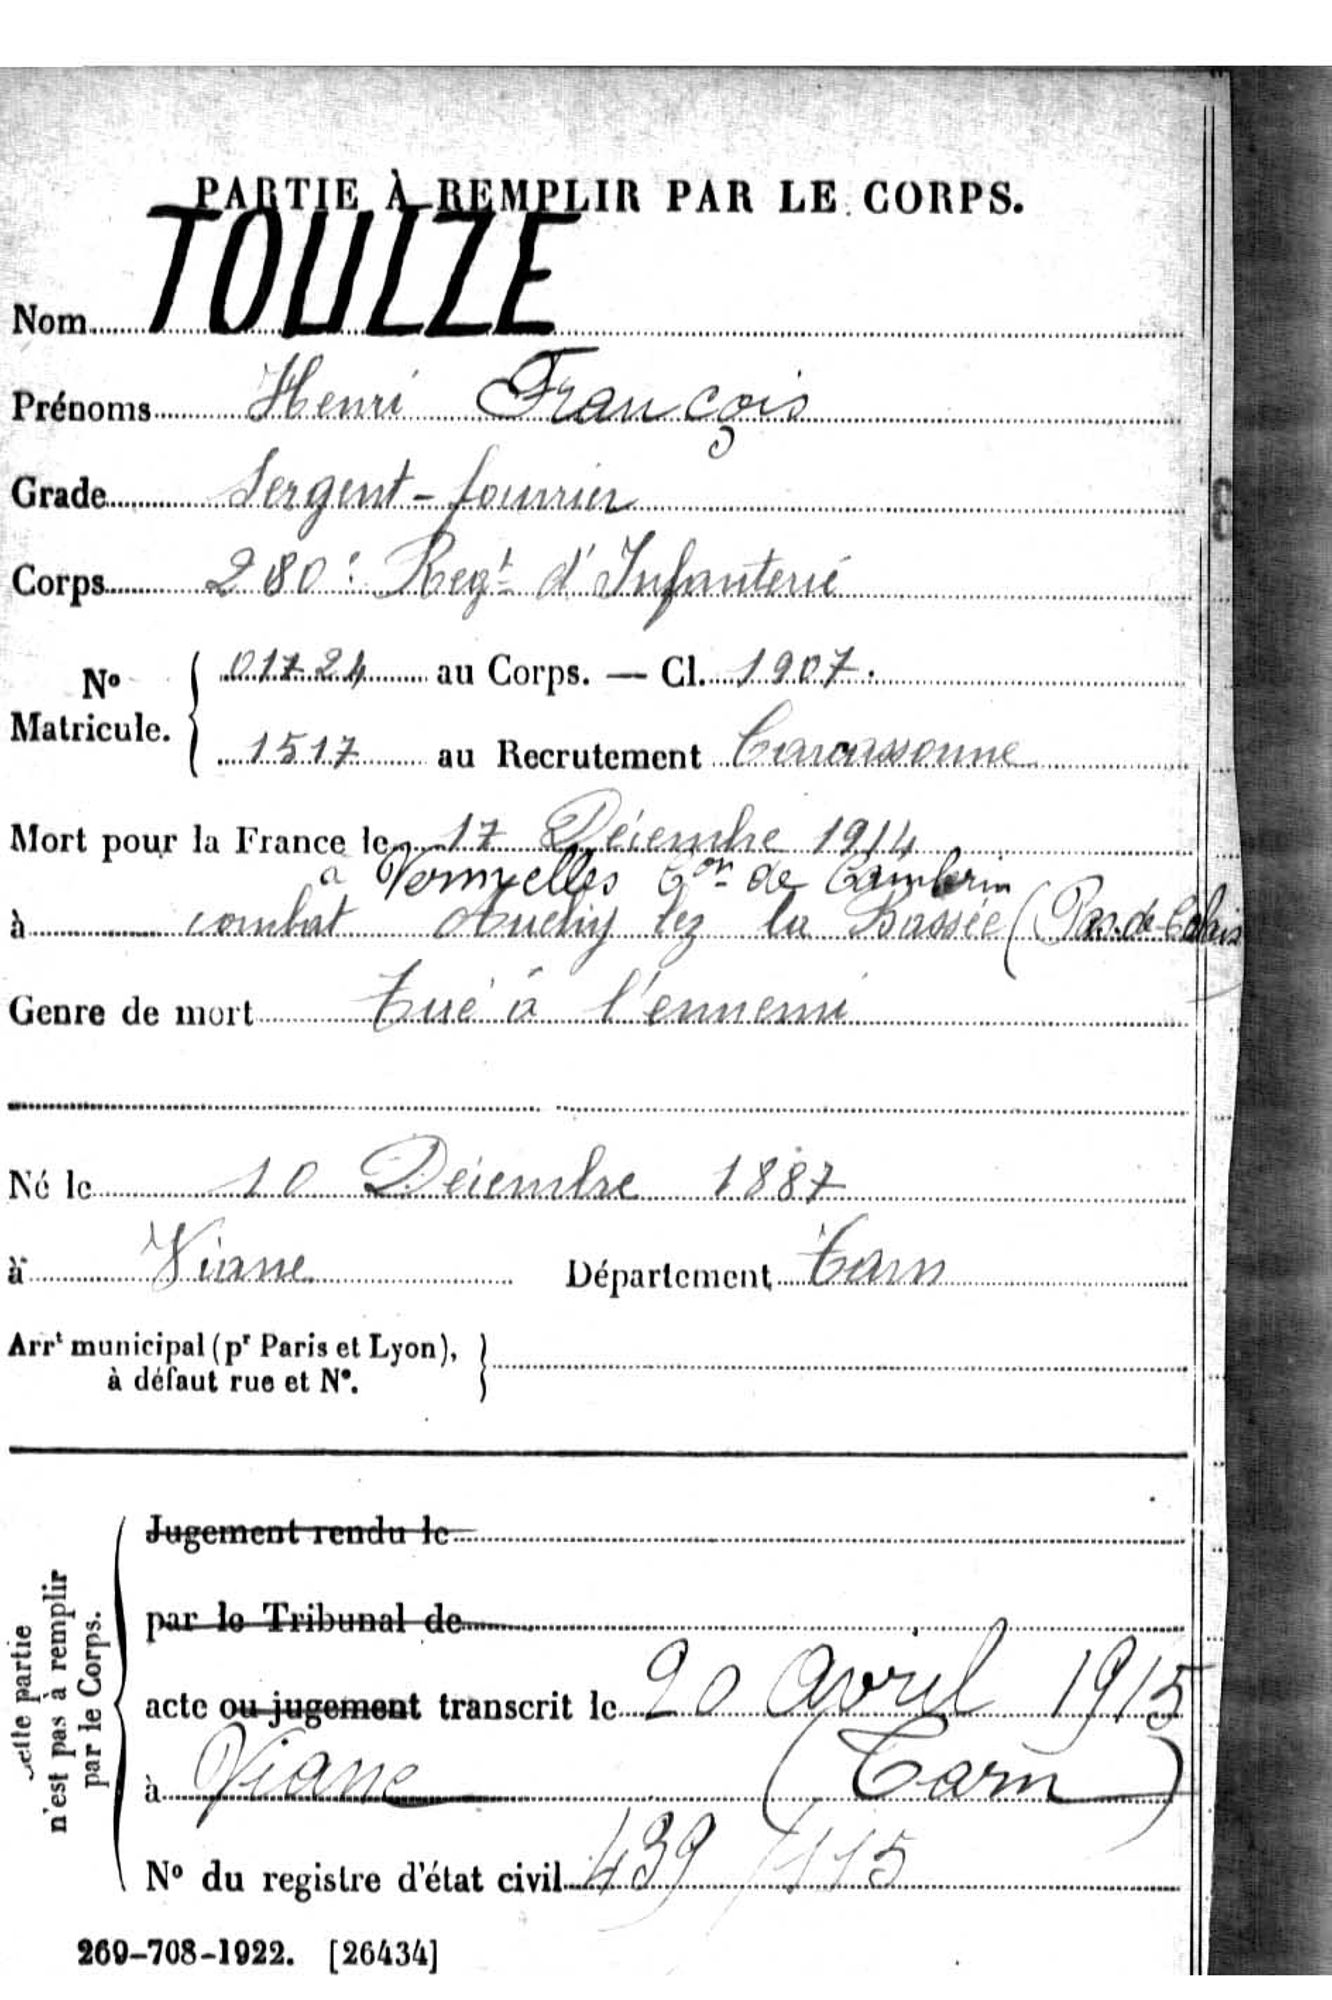 PARTIE À REMPLIR PAR LE CORPS.
Nom TOULZE
Prénoms Henri François
Grade Sergent-fourrier
Corps 280e Regt d'Infanterie
No Matricule. 01724 au Corps. — Cl. 1907.
1517 au Recrutement Carcassonne
Mort pour la France le 17 Décembre 1914
à Vermelles Con de Cambrin
à combat Auchy lez la Bassée (Pas-de-Calais
Genre de mort Tué à l'ennemi
Né le 10 Décembre 1887
à Viane Département Tarn
Arrt municipal (pr Paris et Lyon),
à défaut rue et N°.
Cette partie
n'est pas à remplir
par le Corps.
Jugement rendu le
par le Tribunal de
acte ou jugement transcrit le 20 avril 1915
à Viane (Tarn)
N° du registre d'état civil 439/115
269-708-1922. [26434]